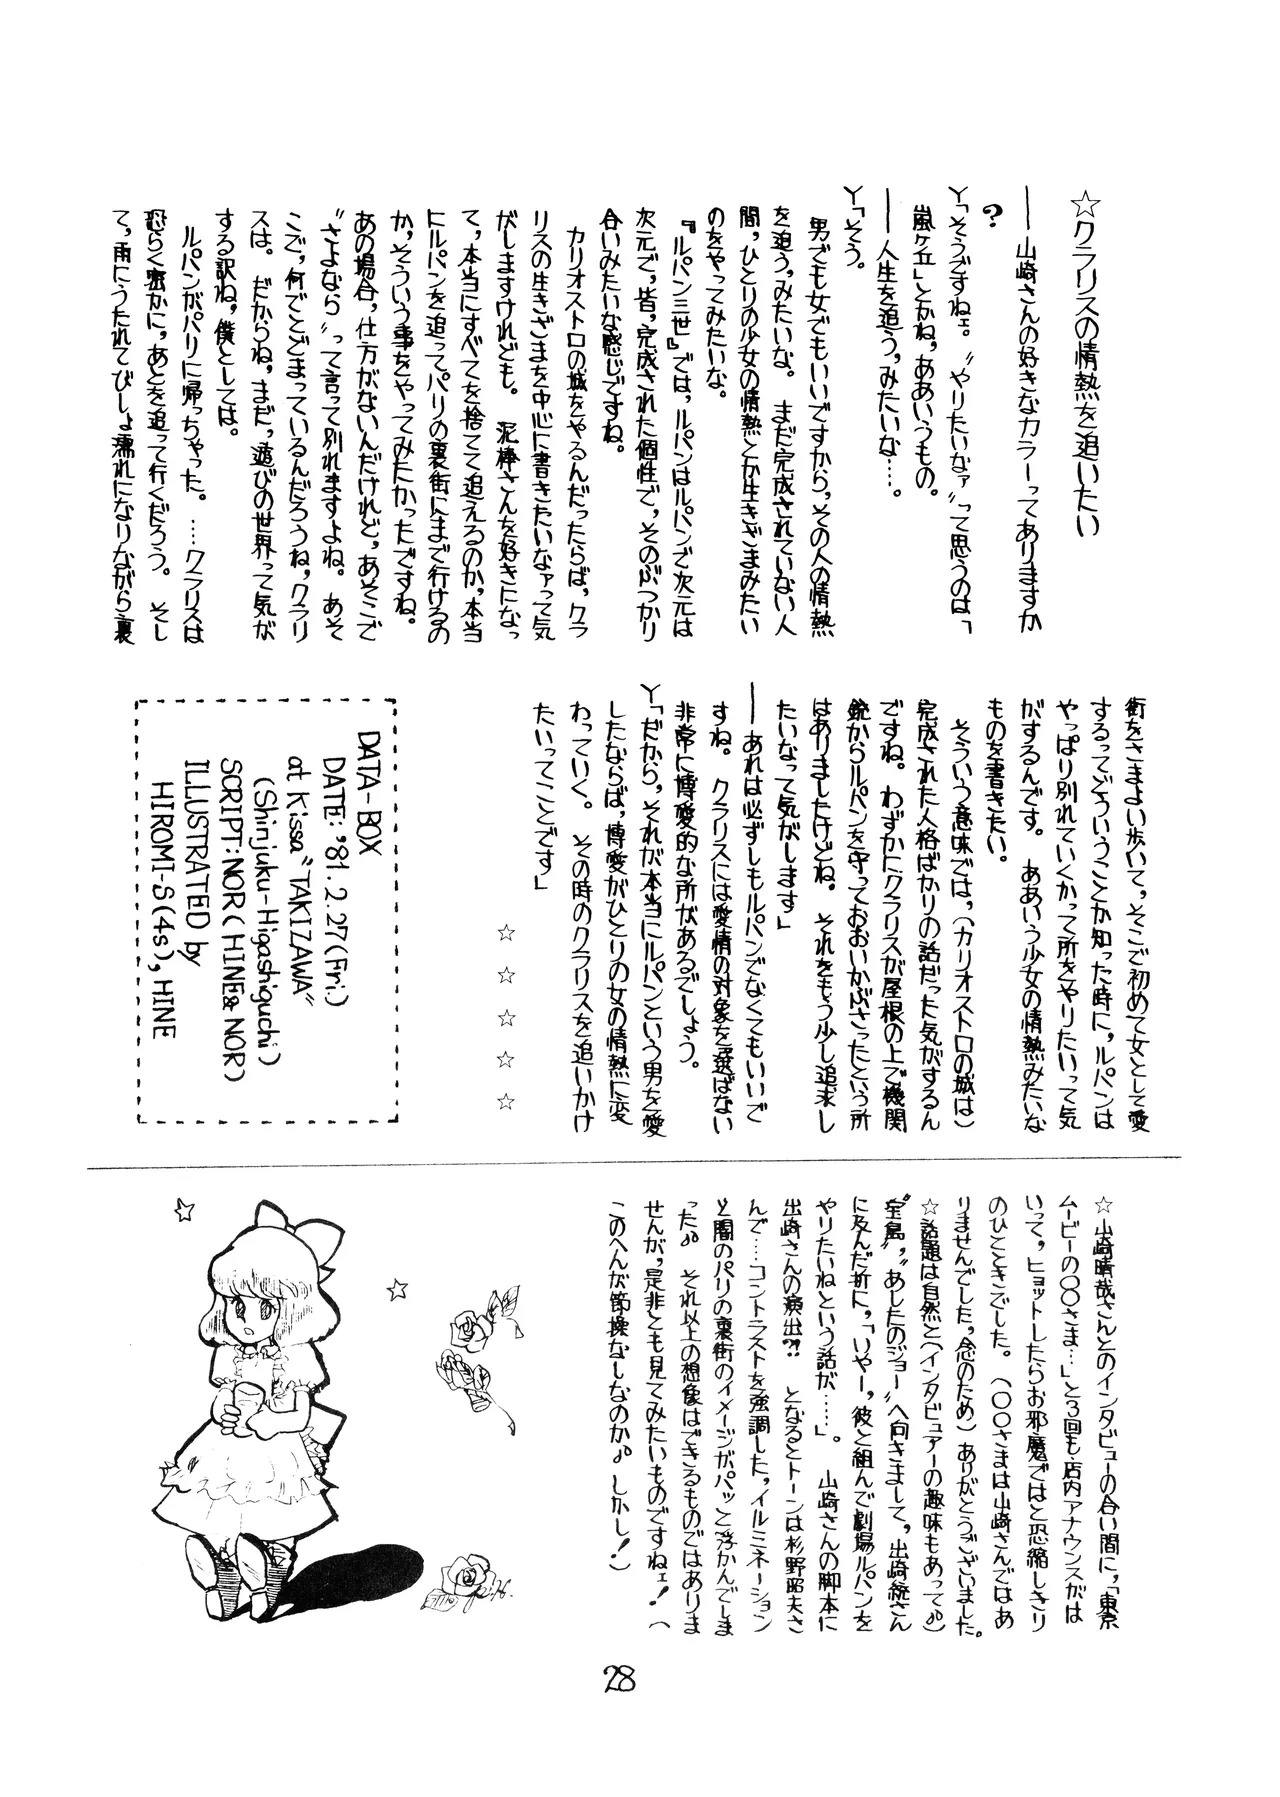 ☆クラリスの情熱を追いたい
――山崎さんの好きなカラーってありますか
？
Y「そうですねェ。〝やりたいなァ〟って思うのは「
嵐ヶ丘」とかね，ああいうもの。
――人生を追う，みたいな……。
Y「そう。
男でも女でもいいですから，その人の情熱
を追う，みたいな。まだ完成されていない人
間，ひとりの少女の情熱とか生きざまみたい
のをやってみたいな。
『ルパン三世』では，ルパンはルパンで次元は
次元で，皆，完成された個性で，そのぶつかり
合いみたいな感じですね。
カリオストロの城をやるんだったらば，クラ
リスの生きざまを中心に書きたいなァって気
がしますけれども。泥棒さんを好きになっ
て，本当にすべてを捨てて追えるのか，本当
にルパンを追ってパリの裏街にまで行けるの
か，そういう事をやってみたかったですね。
あの場合，仕方がないんだけれど，あそこで
〝さよなら〟って言って別れますよね。あそ
こで，何でとどまっているんだろうね，クラリ
スは。だからね，まだ，遊びの世界って気が
する訳ね，僕としては。
ルパンがパリに帰っちゃった。……クラリスは
恐らく密かに，あとを追って行くだろう。そし
て，雨にうたれてびしょ濡れになりながら裏
街をさまよい歩いて，そこで初めて女として愛
するってどういうことか知った時に，ルパンは
やっぱり別れていくかって所をやりたいって気
がするんです。ああいう少女の情熱みたいな
ものを書きたい。
そういう意味では，（カリオストロの城は）
完成された人格ばかりの話だった気がするん
ですね。わずかにクラリスが屋根の上で機関
銃からルパンを守っておおいかぶさったという所
はありましたけどね。それをもう少し追求し
たいなって気がします」
――あれは必ずしもルパンでなくてもいいで
すね。クラリスには愛情の対象を選ばない
非常に博愛的な所があるでしょう。
Y「だから，それが本当にルパンという男を愛
したならば，博愛がひとりの女の情熱に変
わっていく。その時のクラリスを追いかけ
たいってことです」
☆ ☆ ☆ ☆ ☆
DATA-BOX
DATE:'81.2.27(Fri.)
at Kissa "TAKIZAWA"
(Shinjuku-Higashiguchi)
SCRIPT:NOR(HINE&NOR)
ILLUSTRATED by
HIROMI-S(4s),HINE
☆山崎晴哉さんとのインタビューの合い間に，「東京
ムービーの○○さま…」と3回も店内アナウンスがは
いって，ヒョットしたらお邪魔ではと恐縮しきり
のひとときでした。（○○さまは山崎さんではあ
りませんでした，念のため）ありがとうございました。
☆話題は自然と（インタビュアーの趣味もあって〟）
〝宝島〟〝あしたのジョー〟へ向きまして，出崎統さん
に及んだ折に，「いやー，彼と組んで劇場ルパンを
やりたいねという話が……」。山崎さんの脚本に
出崎さんの演出⁈　となるとトーンは杉野昭夫さ
んで……コントラストを強調した，イルミネーション
と闇のパリの裏街のイメージがパッと浮かんでしま
った〟　それ以上の想像はできるものではありま
せんが，是非とも見てみたいものですねェ！（
このへんが節操なしなのか〟しかし！）
28